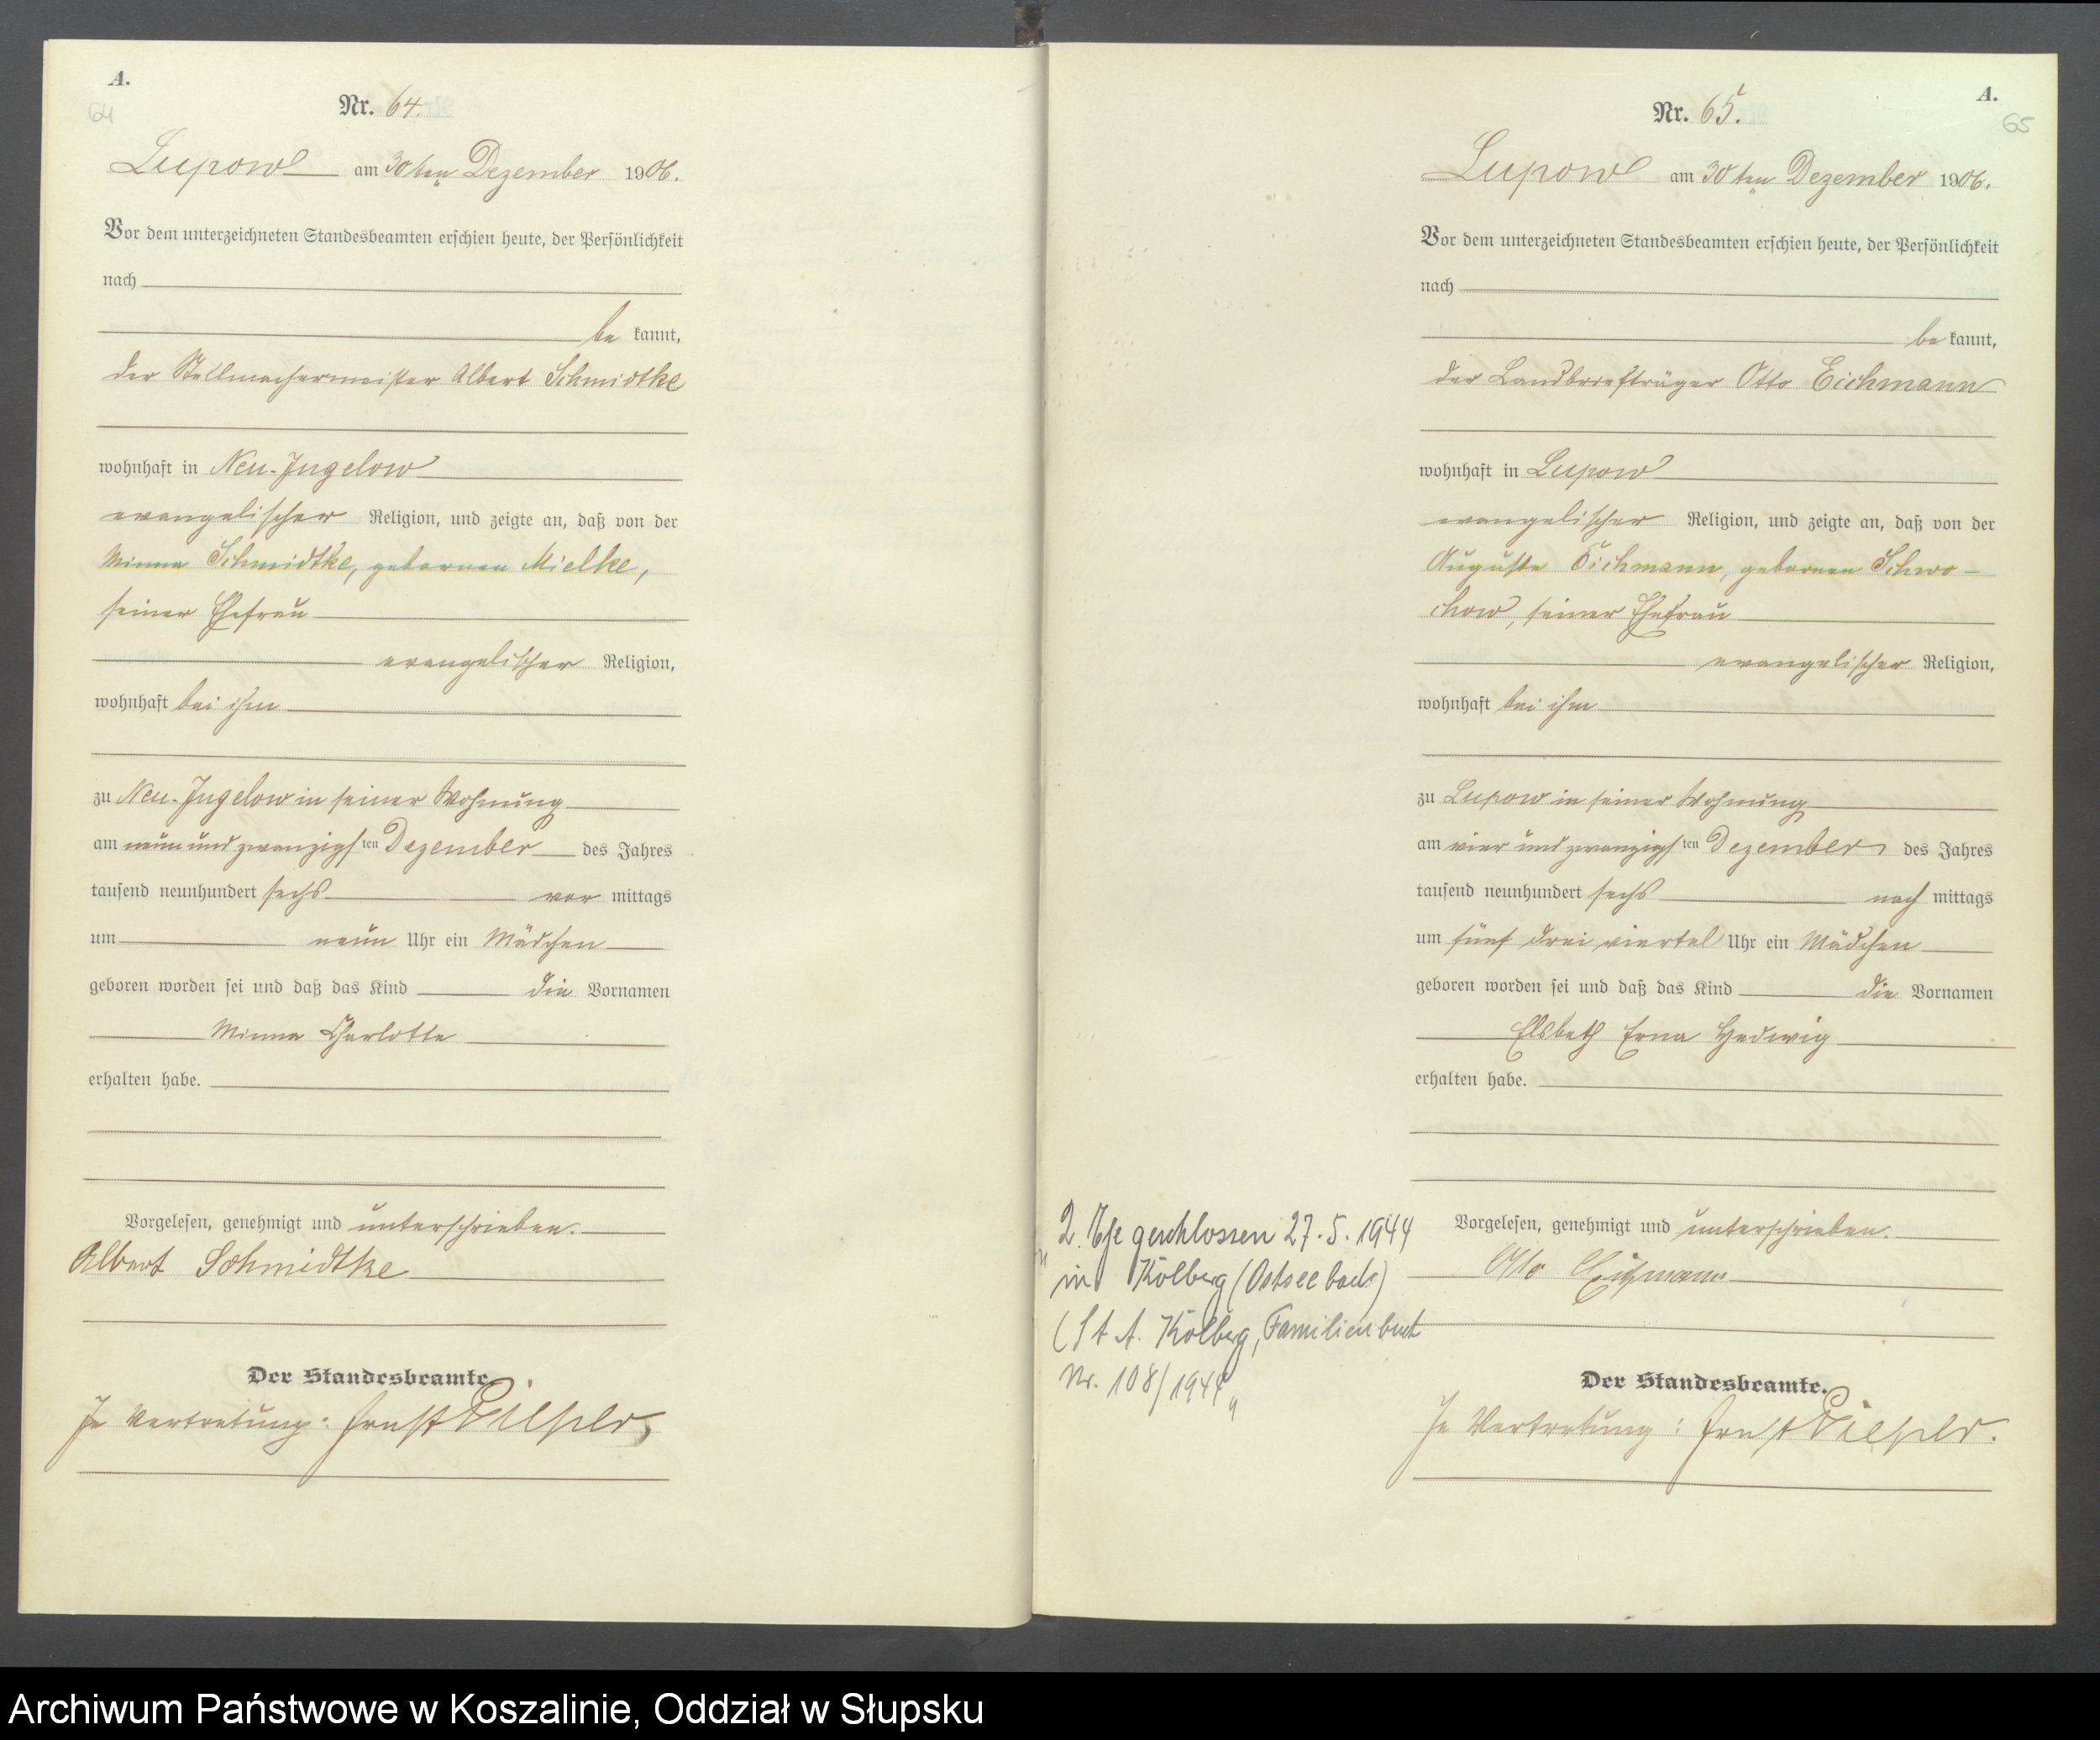 A.
64
Nr. 64.
Lupow am 30ten Dezember 1906.
Vor dem unterzeichneten Standesbeamten erschien heute, der Persönlichkeit
nach
be kannt,
der Stellmachermeister Albert Schmidtke
wohnhaft in Neu-Jugelow
evangelischer Religion, und zeigte an, daß von der
Minna Schmidtke, geborenen Mielke,
seiner Ehefrau
evangelischer Religion,
wohnhaft bei ihm
zu Neu-Jugelow in seiner Wohnung
am neun und zwanzigsten Dezember des Jahres
tausend neunhundert sechs vor mittags
um neun Uhr ein Mädchen
geboren worden sei und daß das Kind die Vornamen
Minna Charlotte
erhalten habe.
Vorgelesen, genehmigt und unterschrieben.
Albert Schmidtke
Der Standesbeamte.
In Vertretung: Ernst
A.
65
Nr. 65.
Lupow am 30ten Dezember 1906.
Vor dem unterzeichneten Standesbeamten erschien heute, der Persönlichkeit
nach
be kannt,
der Landbriefträger Otto Eichmann
wohnhaft in Lupow
evangelischer Religion, und zeigte an, daß von der
Auguste Eichmann, geborenen Schwo-
chow, seiner Ehefrau
evangelischer Religion,
wohnhaft bei ihm
zu Lupow in seiner Wohnung
am vier und zwanzigsten Dezember des Jahres
tausend neunhundert sechs nach mittags
um fünf drei viertel Uhr ein Mädchen
geboren worden sei und daß das Kind die Vornamen
Elsbeth Erna Hedwig
erhalten habe.
Vorgelesen, genehmigt und unterschrieben.
Otto Eichmann
Der Standesbeamte.
In Vertretung: Ernst
„2. Ehe geschlossen 27.5.1944
in Kolberg (Ostseebad)
(St. A. Kolberg, Familienbuch
Nr. 108/1944"
Archiwum Państwowe w Koszalinie, Oddział w Słupsku